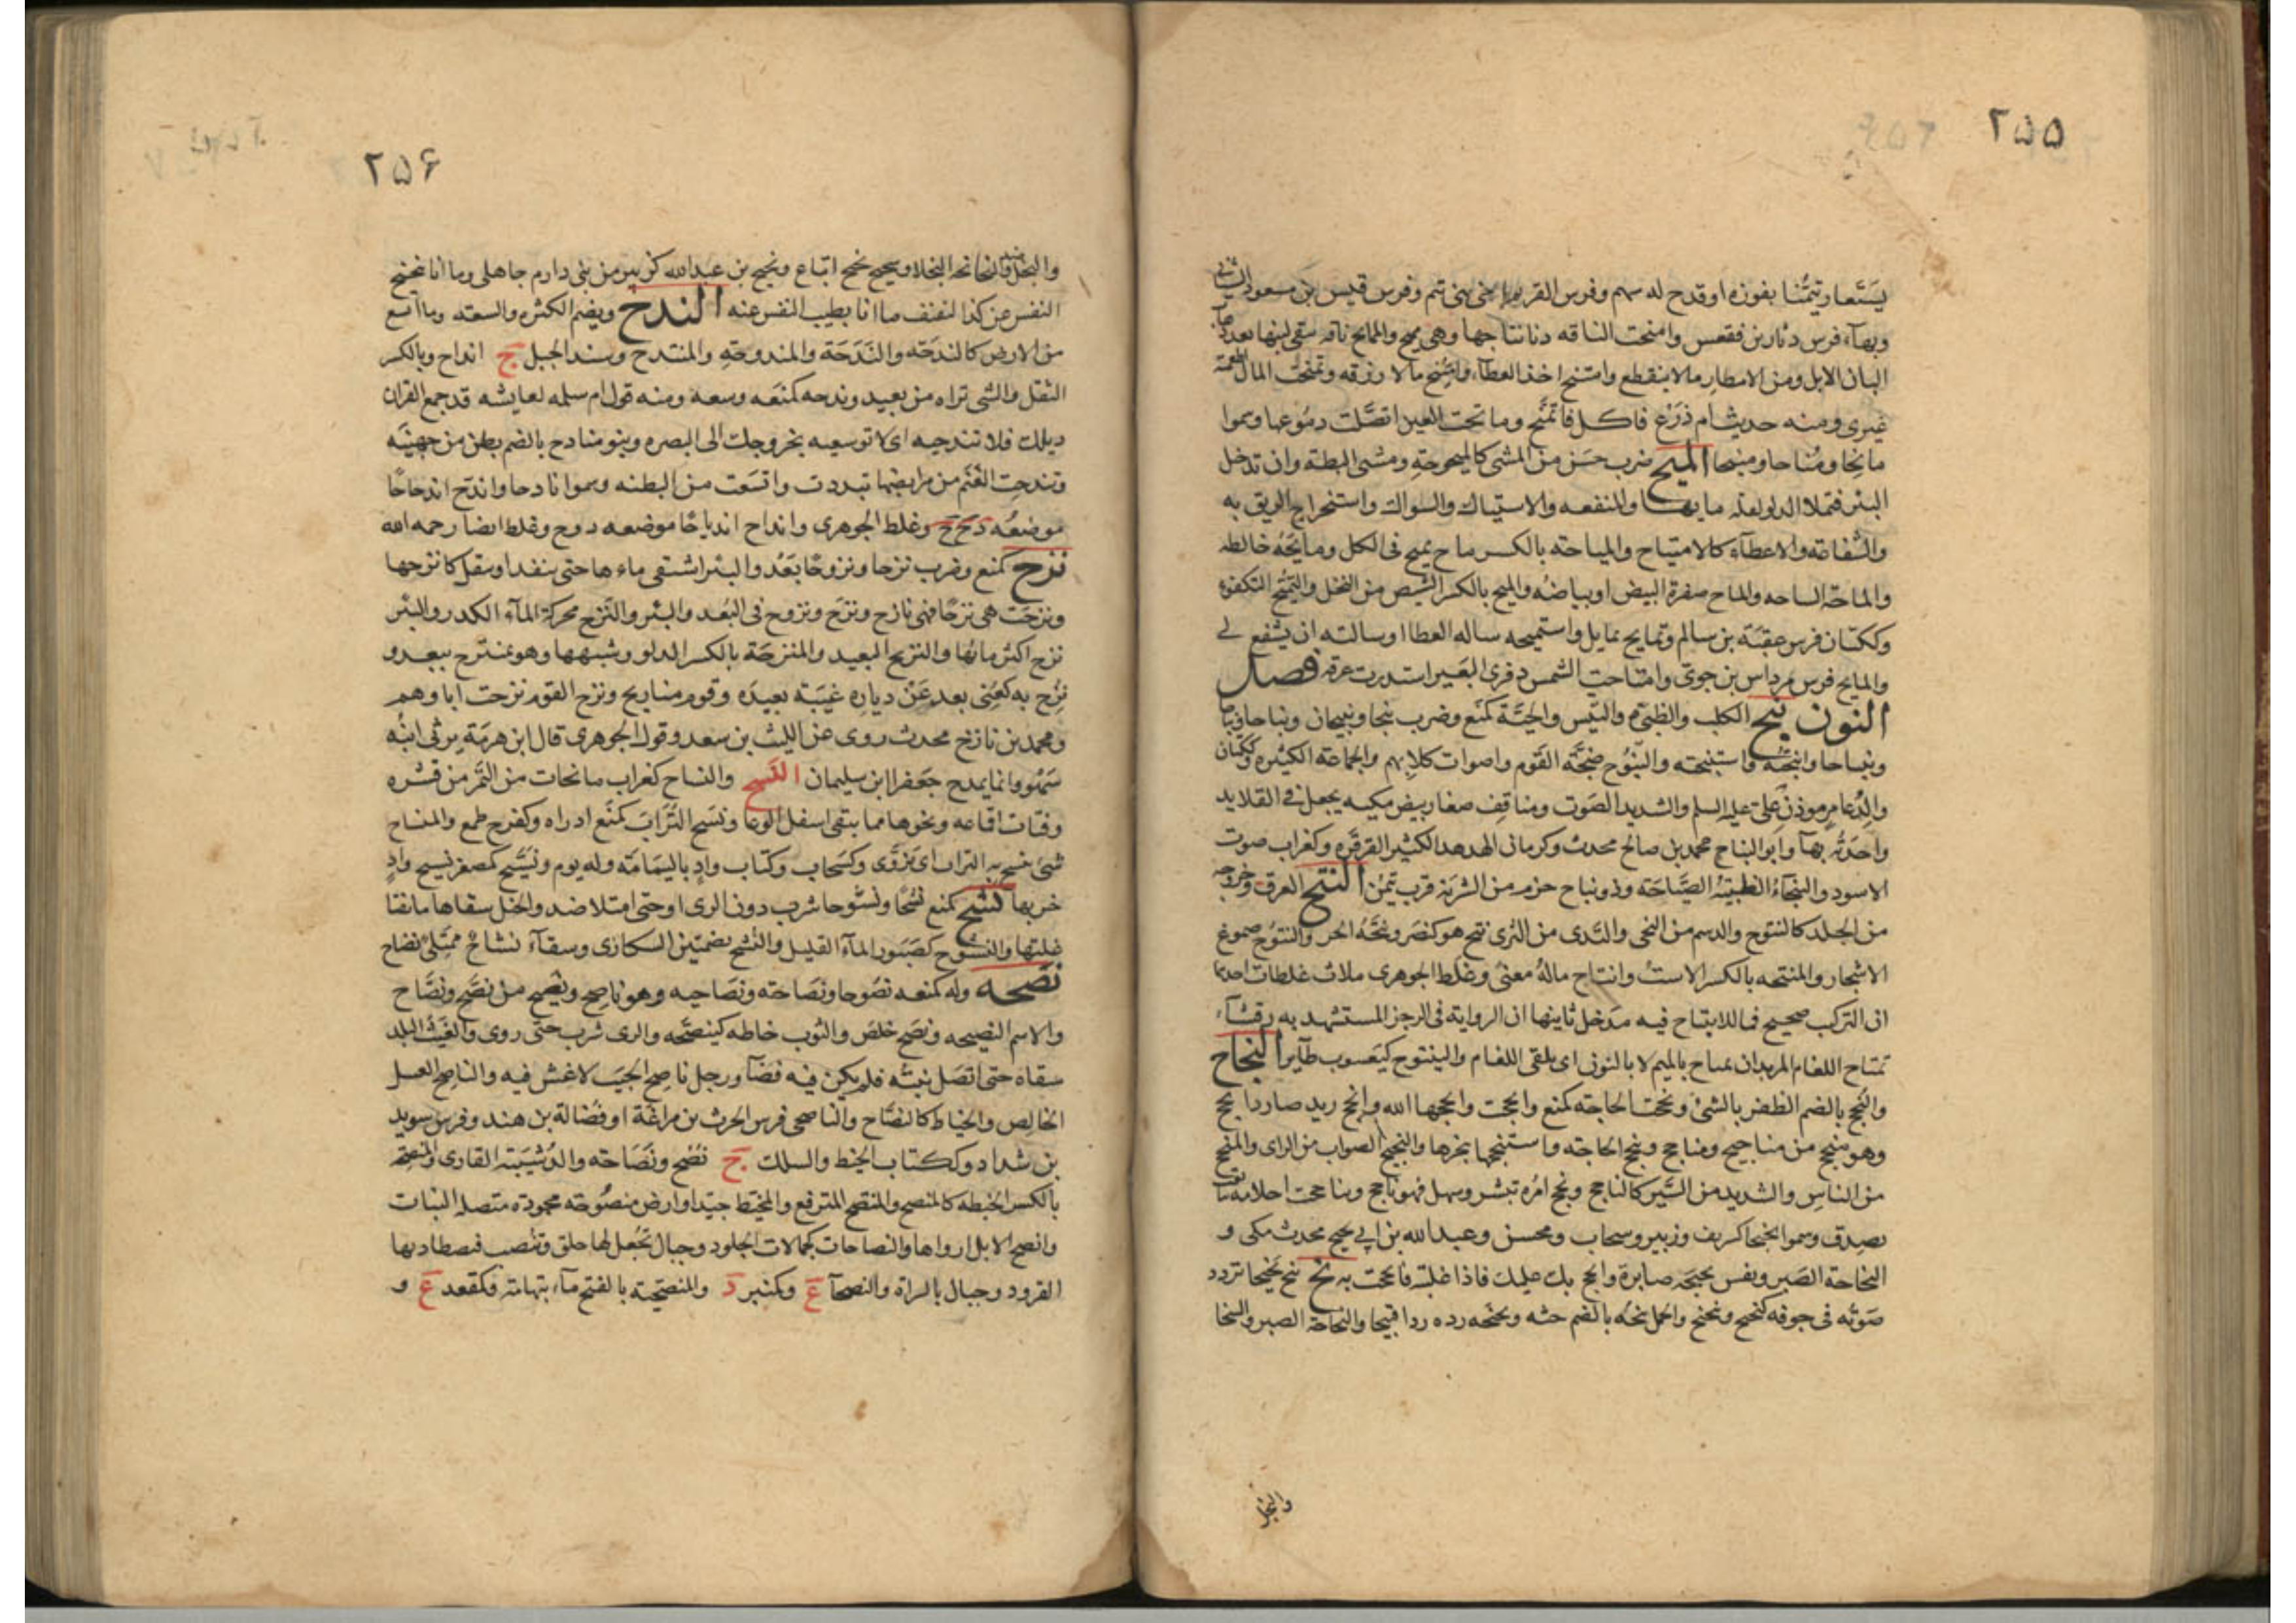 ٢٥٥
يستعار تيمنا بفوزه او قدح له سهم وفرس القريم اخي بني تيم وفرس قيس بن مسعود الشيباني
وبهآء فرس دثار بن فقعس وامنحت الناقه دنا نتاجها وهي ممنح والممانح ناقه يبقى لبنها بعد ذهاب
البان الابل ومن الامطار مالا ينقطع وامتنح اخذ العطآء وامتنح مالا رزقه وتمنحت المال اطعمته
غيري ومنه حديث ام ذرع فاكل فاتمنح وما نحت العين اتصلت دموعها وسموا
مانحا ومناحا ومنيحا الميح ضرب حسن من المشي كالميحوحة ومشي البطة وان تدخل
البئر فتملا الدلو لقلة مايها والمنفعه والاستياك والسواك واستخراج الريق به
والشفاعة والاعطآء كالامتياح والمياحة بالكسر ماح يميح في الكل ومايحه خالطه
والماحة الساحه والماح صفرة البيض او بياضه والميح بالكسر الشيص من النخل والتميح التكفؤ
وككتان فرس عقبة بن سالم وتمايح تمايل واستميحه ساله العطا او سالته ان يشفع لي
والمايح فرس مرداس بن جوي وامتاحت الشمس ذفرى البعير استدرت عرقه فصل
النون نبح الكلب والظبي والتيس والحية كمنع وضرب نبحا ونبيحا ونباحا
ونباحا وانبحته واستنبحته والنبوح ضجة القوم واصوات كلابهم والجماعة الكثيره وككتان
والد عامر موذن علي عليه السلم والشديد الصوت ومناقف صغار بيض مكيه يجعل في القلايد
واحدته بهآ وابو النباح محمد بن صالح محدث وكرمان الهدهد الكثير القرقره وكغراب صوت
الاسود والنبحآء الظبية الصياحة وذو نباح حزم من الشربة قرب تيمن النتح العرق وخروجه
من الجلد كالنتوح والدسم من النحي والندى من الثرى نتح هو كضرب ونتحه الحر والنتوح صموغ
الاشجار والمنتحه بالكسر الاست وانتاح ماله معنى وغلط الجوهري ثلاث غلطات احدها
ان التركيب صحيح فما للانتياح فيه مدخل ثانيها ان الرواية في الرجز المستشهد به رقشآء
تمتاح اللغام المزبدا تمتاح بالميم لا بالنون اي يلقي اللغام والينتوح كيعسوب طآير النجاح
والنجح بالضم الظفر بالشئ ونجحت الحاجة كمنع وانجحت وانجحها الله وانجح زيد صار ذا نجح
وهو منجح من مناجيح ومناجح وتنجح الحاجة واستنجحها تنجزها والنجيح الصواب من الراى والمنجح
من الناس والشديد من السير كالناجح ونجح امره تيسر وسهل فهو ناجح وتناجحت احلامه تتابعت
بصدق وسموا نجيحا كزبير وسحاب ومحسن وعبد الله بن ابي نجيح محدث مكي و
النجاحة الصبر ونفس نجيحة صابرة وانجح بك غلبك فاذا غلبته فانجحت به نح ينح نحيحا تردد
صوته في جوفه كنحنح وتنحنح والجمل نحه بالضم حثه ونحنحه رده ردا قبيحا والنحاحة الصبر والسخا
والبخل
٢٥٦
والبخل ضد والنحانحة البخلا وشحيح نحيح اتباع ونحيح بن عبد الله كزبير من بني دارم جاهلي وما انا نحيح
النفس عن كذا كنفنف ما انا بطيب النفس عنه الندح ويضم الكثره والسعه وما اتسع
من الارض كالندحه والندحة والمندوحة والمنتدح وسند الجبل ج انداح وبالكسر
الثقل والشئ تراه من بعيد وندحه كمنعه وسعه ومنه قول ام سلمه لعايشه قد جمع القران
ذيلك فلا تندحيه اي لا توسعيه بخروجك الى البصره وبنو منادح بالضم بطن من جهينه
وتندحت الغنم من مرابضها تبددت واتسعت من البطنه وسموا نادحا واندح اندحاحا
موضعه د ح ح وغلط الجوهري وانداح اندياحا موضعه دوح وغلط ايضا رحمه الله
نزح كمنع وضرب نزحا ونزوحا بعد والبئر استقى ماءها حتى ينفد او يقل كانزحها
ونزحت هي نزحا فهي نازح ونزح ونزوح في البعد والبئر والنزح محركة المآء الكدر والبئر
نزح اكثر مائها والنزيح البعيد والمنزحة بالكسر الدلو وشبهها وهو بمنتزح ببعد و
نزح به كعني بعد عن دياره غيبة بعيده وقوم منازيح ونزح القوم نزحت اباوهم
ومحمد بن نازح محدث روى عن الليث بن سعد وقول الجوهري قال ابن هرمة يرثي ابنه
سهو وانما يمدح جعفر ابن سليمان النسح والنساح كغراب ما تحات من التمر من قشره
وفتات اقماعه ونحوها مما يبقى اسفل الوعا ونسح التراب كمنع اذراه وكفرح طمع والمنساح
شئ ينسح به التراب اي يذرى وكسحاب وكتاب واد باليمامة وله يوم ونسيح كمصغر نسيح واد
خربها نشح كمنع نشحا ونشوحا شرب دون الرى او حتى امتلا ضد والخيل سقاها ما يفثا
غلتها والنشوح كصبور المآء القليل والنشح بضمتين السكارى وسقآء نشاح ممتلئ نضاح
نصحه وله كمنعه نصوحا ونصاحة ونصاحيه وهو ناصح ونصيح من نصح ونصاح
والاسم النصيحه ونصح خلص والثوب خاطه كينصحه والرى شرب حتى روى والغيث البلد
سقاه حتى اتصل نبته فلم يكن فيه فضآ ورجل ناصح الجيب لا غش فيه والناصح العسل
الخالص والخياط كالنصاح والناصحي فرس الحرث بن مراغة او فضالة بن هند وفرس سويد
بن شداد وككتاب الخيط والسلك ج نصح ونصاحة والد شيبة القاري والمنصحة
بالكسر المخيطه كالمنصح والمنصح المترقع والمخيط جيدا وارض منصوحة مجودة متصلة النبات
وانصح الابل ارواها والنصاحات كجمالات الجلود وحبال تجعل لها حلق وتنصب فيصطاد بها
القرود وجبال بالسراة والنصحآء ع وكمنبر د والمنصحية بالفتح مآء بتهامة وكمقعد ع و